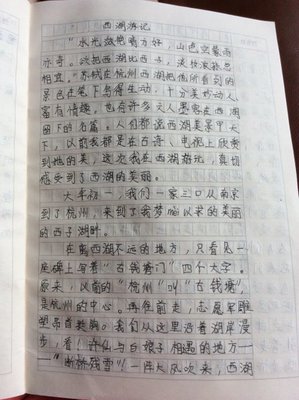 西湖游记
"水光潋滟晴方好,山色空蒙雨
亦奇。欲把西湖比西子,淡妆浓抹总
相宜。"苏轼在杭州西湖把他所看到的
景色在笔下写得生动,十分美妙动人,
富有情趣,也有许多文人墨客在西湖
留下的名篇。人们都说西湖美景甲天
下,以前我都是在古诗、电视上欣赏
到她的美,这次我在西湖游玩,真切
感受到了西湖的美丽。
大年初一,我们一家三口从南京
到了杭州,来到了我梦寐以求的美丽
的西子湖畔。
在离西湖不远的地方,只看见一
座碑上写着"古钱塘门"四个大字。
原来,以前的"杭州"叫"古钱塘",
是杭州的中心。再往前走,志愿军雕
塑昂首挺胸。我们从这里沿着湖岸漫
步,看!许仙与白娘子相遇的地方—
—"断桥残雪"!一阵大风吹来,西湖